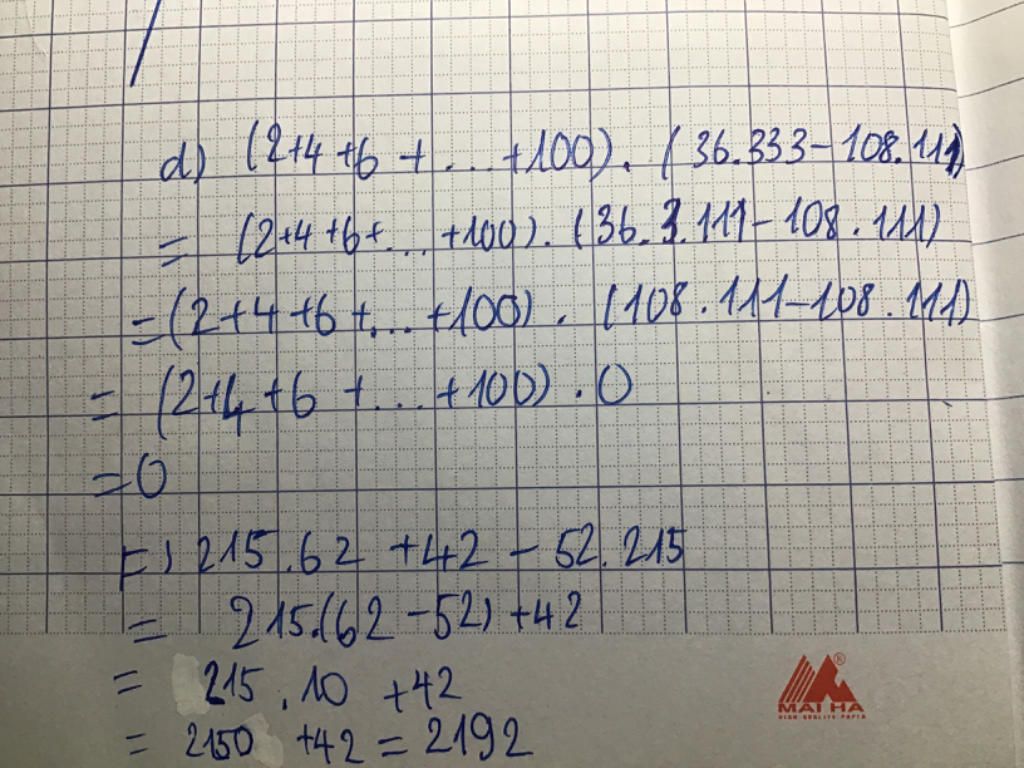 d) (2+4+6+...+100).(36.333-108.111)
= (2+4+6+...+100).(36.3.111-108.111)
=(2+4+6+...+100).(108.111-108.111)
= (2+4+6+...+100).0
=0
F) 215.62 +42 - 52.215
= 215.(62-52)+42
= 215.10 +42
= 2150 +42 = 2192
MAI HA®
HIGH-QUALITY PAPER